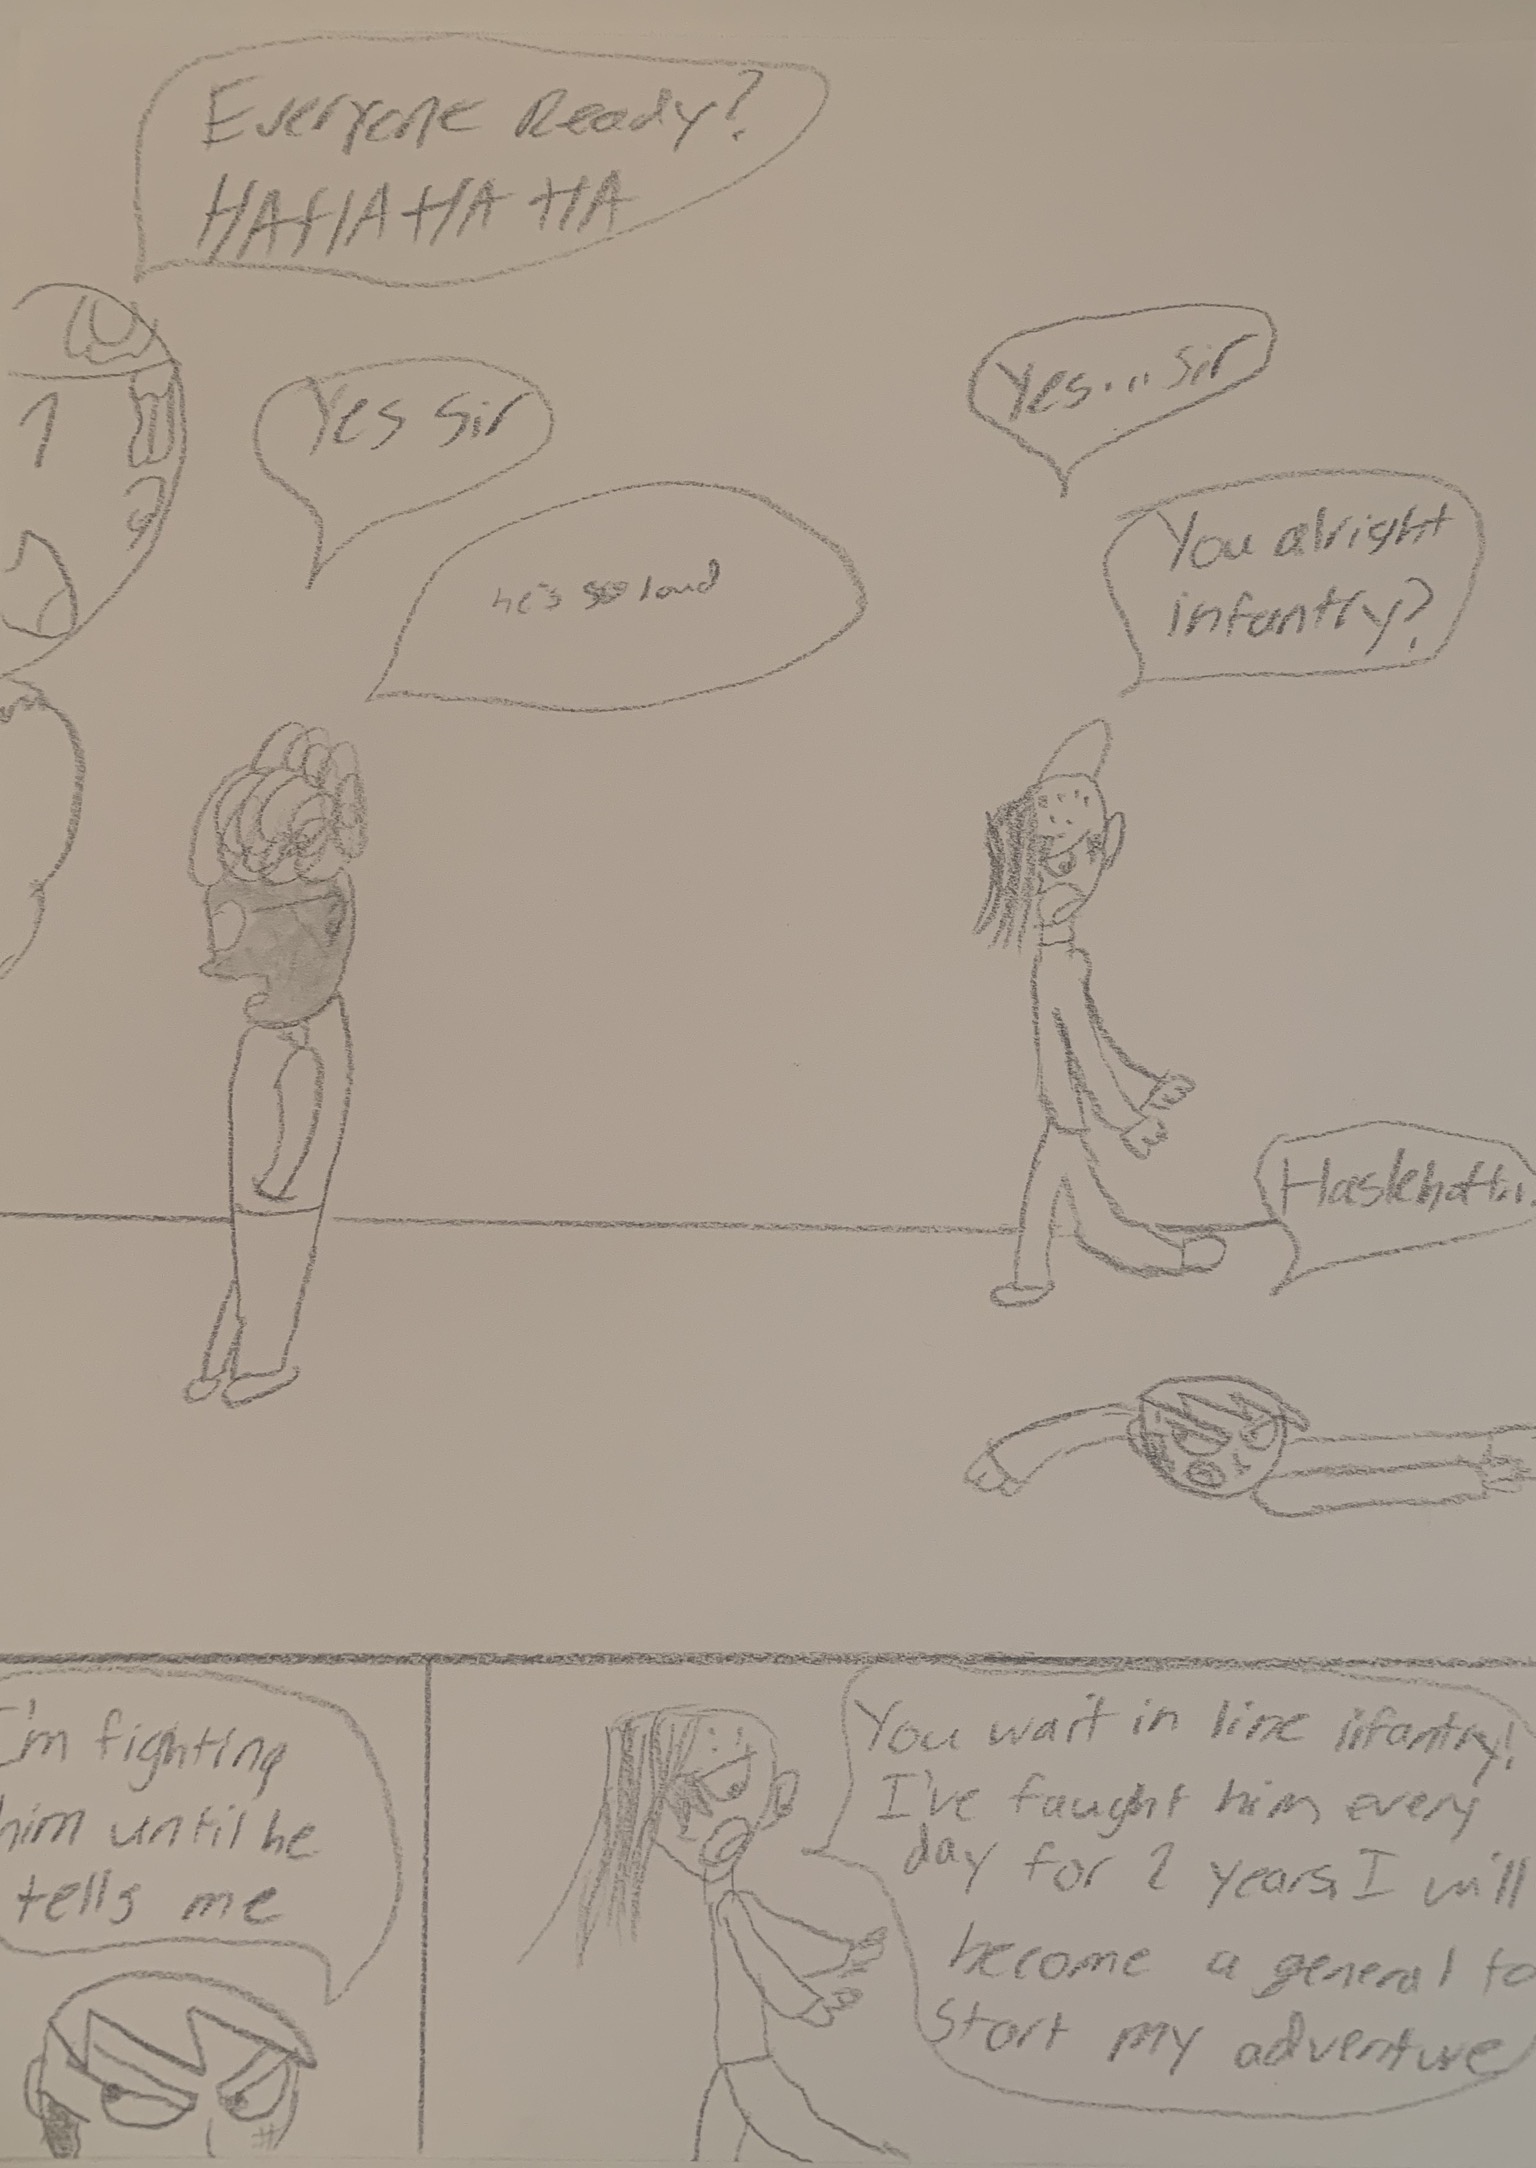 Everyone Ready?
HAHAHA HA
Yes Sir
he's so loud
Yes... Sir
You alright
infantry?
I'm fighting
him until he
tells me
You wait in line ifantry!
I've faught him every
day for 2 years, I will
become a general to
start my adventure